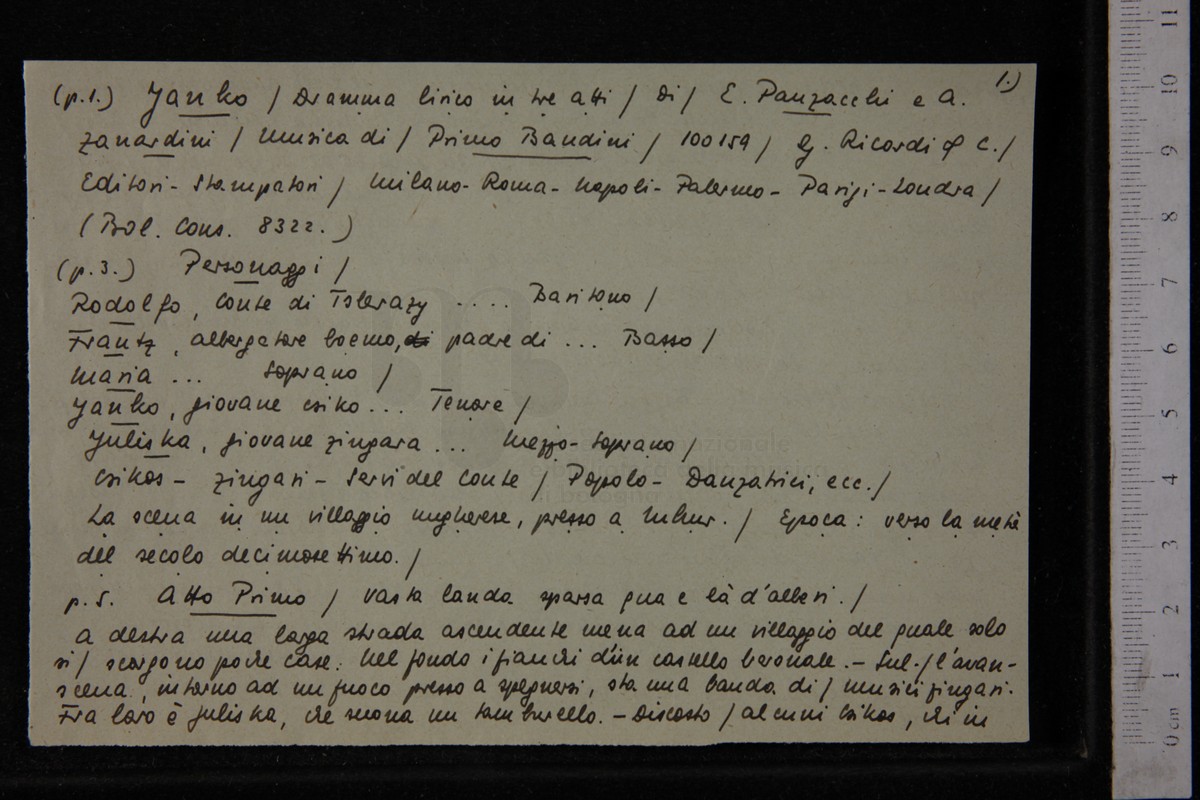 1.)
(p.1.) Yanko / Dramma lirico in tre atti / di / E. Panzacchi e A.
Zanardini / Musica di / Primo Bandini / 100159 / G. Ricordi & C. /
Editori - Stampatori / Milano - Roma - Napoli - Palermo - Parigi - Londra /
(Bol. Cons. 8322.)
(p.3.) Personaggi /
Rodolfo, Conte di .... Baritono /
Frantz, albergatore boemo, padre di ... Basso /
Maria ... Soprano /
Yanko, giovane csiko ... Tenore /
Yuliska, giovane zingara ... Mezzo-Soprano /
Csikos - Zingari - Servi del Conte / Popolo - Danzatrici, ecc. /
La scena in un villaggio ungherese, presso a / Epoca: verso la metà
del secolo decimosettimo. /
p. 5. Atto Primo / Vasta landa sparsa qua e là d'alberi. /
A destra una larga strada ascendente mena ad un villaggio del quale solo
si / scorgono poche case. Nel fondo i fianchi d'un castello baronale. - Sul- / l'avan-
scena, intorno ad un fuoco presso a spegnersi, sta una banda di / musici zingari.
Fra loro è Juliska, che suona un tamburello. - Discosto / alcuni Csikos, chi in